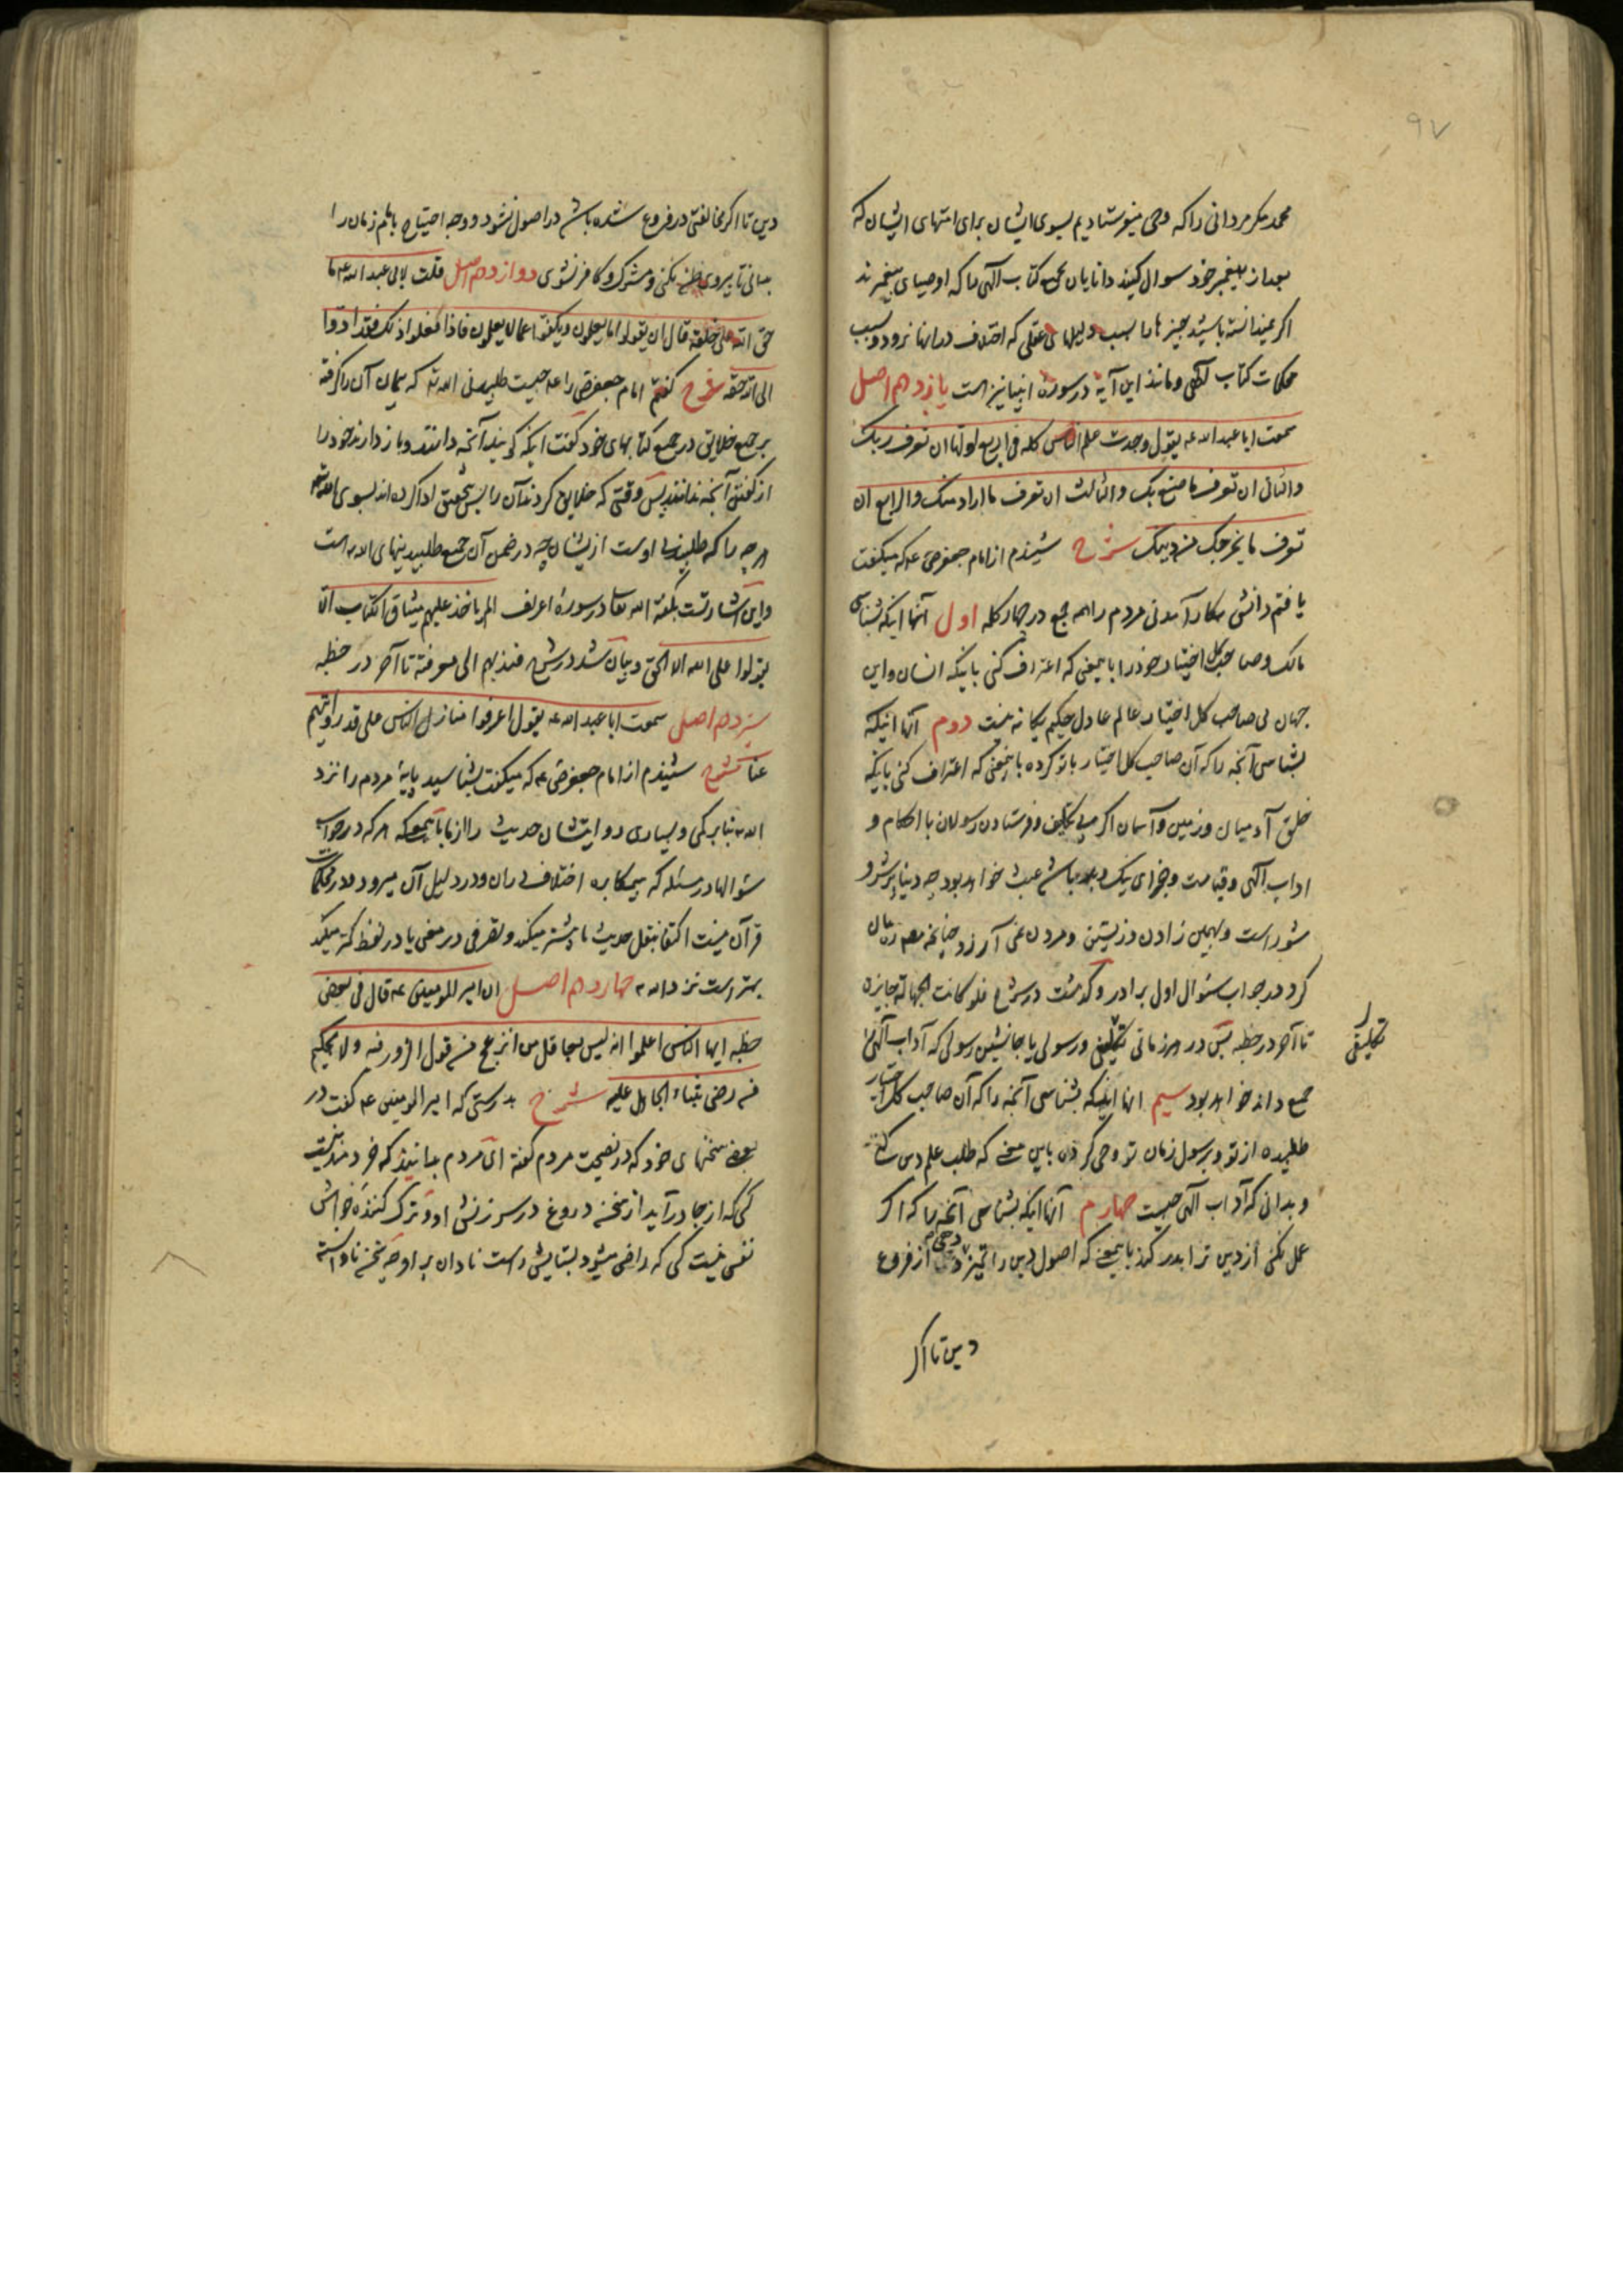 ۹۷
محمد مکر مردانی را که وحی میفرستادیم بسوی ایشان برای امتهای ایشان که
بعد از پیغمبر خود سوال کنید دانایان محکم کتاب الهی را که اوصیای پیغمبرند
اگر نمیدانسته باشید چیزها را بسبب دلیلهای عقلی که اختلاف در آنها نرود و بسبب
محکمات کتاب الهی و مانند این آیه در سوره انبیا نیز هست یازدهم اصل
سمعت ابا عبد الله ع یقول وجدت علم الناس کله فی اربع اولها ان تعرف ربک
والثانی ان تعرف ما صنع بک والثالث ان تعرف ما اراد منک والرابع ان
تعرف ما یخرجک من دینک شرح شنیدم از امام جعفر ص ع که میگفت
یافتم دانش بکار آمدنی مردم را همه جمع در چهار کله اول آنها اینکه بشناسی
مالک و صاحب کل اختیار خود را باین معنی که اعتراف کنی باینکه انسان و این
جهان بی صاحب کل اختیار عالم عادل حکیم یگانه نیست دوم آنها اینکه
بشناسی آنچه را که آن صاحب کل اختیار با تو کرده باین معنی که اعتراف کنی باینکه
خلق آدمیان و زمین و آسمان اگر بی تکلیف و فرستادن رسولان با احکام و
اداب الهی و قیامت و جزای نیک و بد باشد عبث خواهد بود چه دنیا پر شر و
شور است و بهمین زادن و زیستن و مردن نمی ارزد چنانچه معه زمان
کرد در جواب سئوال اول برادر و گذشت در شرح فلو کانت الجهالة جایزة
تا آخر در خطبه پس در هر زمانی تکلیفی و رسولی یا جانشین رسولی که آداب الهی را
تکلیفی
جمع داند خواهد بود سیم انها اینکه بشناسی آنچه را که آن صاحب کل اختیار
طلبیده از تو و برسول زمان تو وحی کرده باین معنی که طلب علم دین کنی
و بدانی که آداب الهی چیست چهارم آنها اینکه بشناسی آنچه را که اگر
عمل نکنی از دین ترا بدر کند باین معنی که اصول دین را تمیز دهی از فروع
دین تا اگر
دین تا اگر مخالفتی در فروع شده باشد در اصول نشود و وجه احتیاج بامام زمان را
بدانی تا پیروی ظن نکنی و مشرک و کافر نشوی دوازدهم اصل قلت لابی عبد الله ع ما
حق الله علی خلقه قال ان یقولوا ما یعلمون ویکفوا عما لا یعلمون فاذا فعلوا ذلک فقد ادوا
الی الله حقه شرح گفتم امام جعفر ص را ع چیست طلبیدنی الله که پیمان آن را گرفته
بر جمیع خلایق در جمیع کتابهای خود گفت اینکه گویند آنچه دانند و باز دارند خود را
از گفتن آنچه ندانند پس وقتی که خلایق کردند آن را پس بتحقیق ادا کرده اند بسوی الله
هر چه را که طلبیدنی اوست از یشان چه در ضمن آن جمیع طلبیدنیهای الله است
و این اشارتست بگفته الله تعالی در سورهٔ اعراف الم یؤخذ علیهم میثاق الکتاب الا
یقولوا علی الله الا الحق و بیان شد در شرح فندبهم الی معرفته تا آخر در خطبه
سیزدهم اصل سمعت ابا عبد الله ع یقول اعرفوا منازل الناس علی قدر روایتهم
عنا شرح شنیدم از امام جعفر ص ع که میگفت بشناسید پایهٔ مردم را نزد
الله بنا بر کمی و بسیاری روایتشان حدیث را از ما باین معنی که هر که در جواب
سئوالها در مسئله که بیمکابره اختلاف در ان و در دلیل آن میرود و در محکمات
قرآن نیست اکتفا بنقل حدیث ما بیشتر میکند و تصرفی در معنی یا در لفظ کمتر میکند
بهتر است نزد الله چهاردهم اصل ان امیر المومنین ع قال فی بعض
خطبه ایها الناس اعلموا انه لیس بعاقل من انزعج من قول الزور فیه ولا بحکیم
من رضی بثناء الجاهل علیه شرح بدرستی که امیر المومنین ع گفت در
بعض سخنهای خود که در نصیحت مردم گفته ای مردم بدانید که خردمند نیست
کسی که از جا درآید از سخن دروغ در سرزنش او و ترک کنندهٔ خواهش
نفس نیست کسی که راضی میشود بستایش نادان بر او چه سخن نادانسته